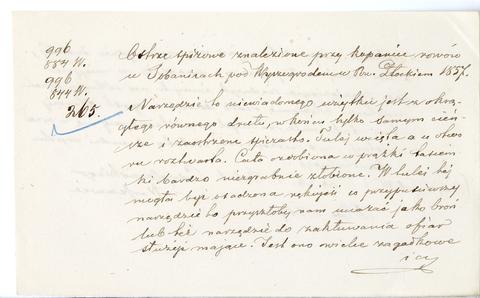 996
854 N.
996
844 N.
265.
Ostrze spiżowe znalezione przy kopaniu rowów
w pod Wyszogrodem w Ow. Płockiem 1857.
Narzędzie to niewiadomego użytku jest z okrą
głego równego drutu, w końcu tylko samym cień
sze i zaostrzone śpiczasto. Tulej wcięta a u otwo
ru roztwarta. Cała ozdobiona w prążki
ki bardzo niezgrabnie żłobione. W tulei tej
mogła być osadzona rękojeść w przypuszczeniu
narzędzie to przyszłoby nam uważać jako broń
lub też narzędzie do zakłuwania ofiar
służyć mające. Jest ono wielce zagadkowe
i